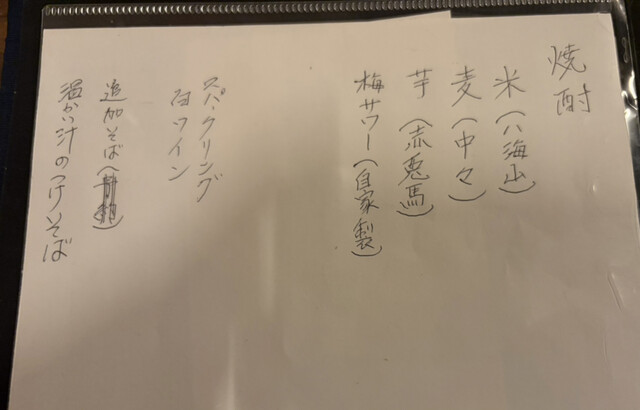 焼酎
米(八海山)
麦(中々)
芋(赤兎馬)
梅サワー(自家製)
スパークリング
白ワイン
追加そば()
温かい汁のつけそば